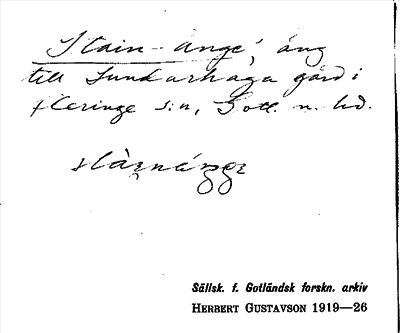 Stain-änge, äng
till Sundarhaga gård i
Fleringe s:n, Gotl. n. hd.
Sällsk. f. Gotländsk forskn. arkiv
HERBERT GUSTAVSON 1919—26